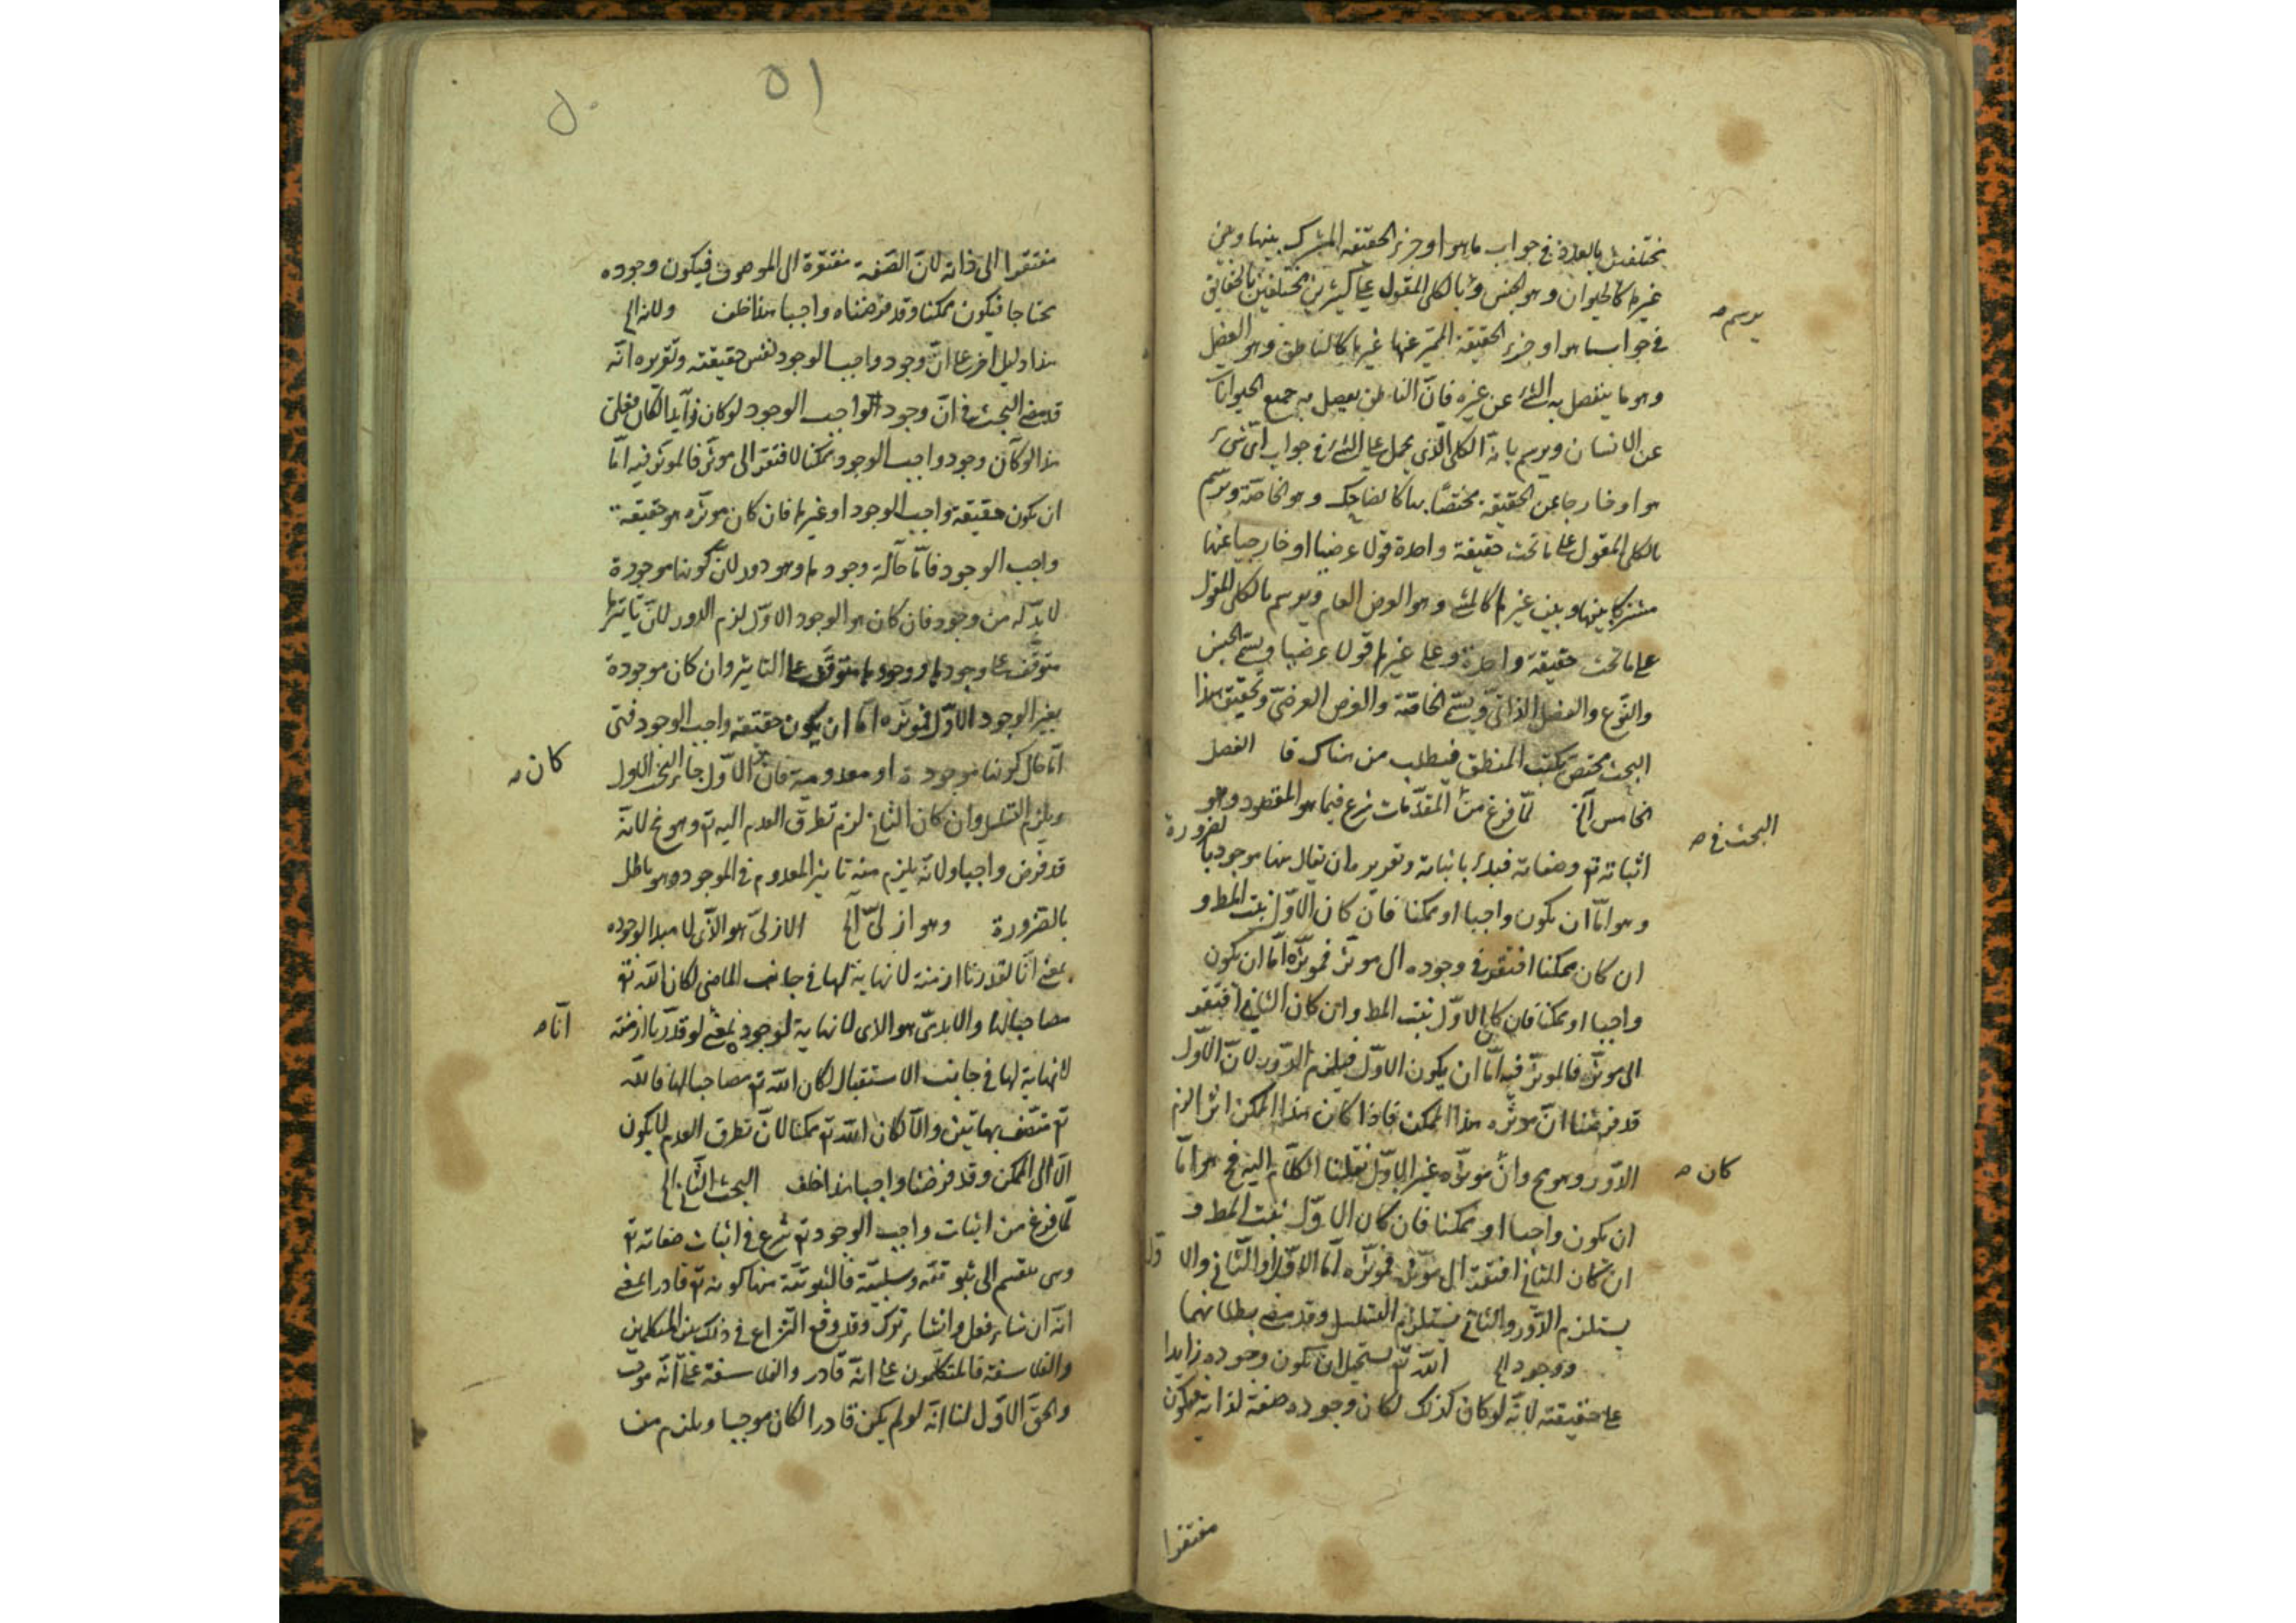 مختلفين بالعدد في جواب ما هو او جزء الحقيقة المشترك بينها وبين
غيرها كالحيوان وهو الجنس و بالكلى المقول على كثيرين مختلفين بالحقايق
يرسم صح
في جواب ما هو او جزء الحقيقة المميز عنها غيرها كالناطق وهو الفصل
وهو ما ينفصل به الشئ عن غيره فانّ الناطق يفصل به جميع الحيوانات
عن الانسان ويرسم بانّه الكلى الّذى يحمل على الشئ في جواب اىّ شىء
هو او خارجا عن الحقيقة مختصّا بها كالضاحك وهو الخاصّة ويرسم
بالكلى المقول على ما تحت حقيقة واحدة قولا عرضيا او خارجيا عنها
مشتركا بينها وبين غيرها كالمشى وهو العرض العام ويرسم بالكلى المقول
على ما تحت حقيقة واحدة وعلى غيرها قولا عرضيا ويسمّى الجنس
والنّوع والفصل الذاتىّ ويسمّى الخاصّة والعرض العرضىّ وتحقيق هذا
البحث مختصّ بكتب المنطق فيطلب من هناك قا الفصل
الخامس آلخ لمّا فرغ من المقدّمات شرع فيما هو المقصود وهو
البحث في صح
اثباته تع وصفاته فبدأ باثباته وتقريره ان يقال هنا موجود بالضرورة
وهو امّا ان يكون واجبا او ممكنا فان كان الاوّل ثبت المط و
ان كان ممكنا افتقر في وجوده الى موثر فموثّره امّا ان يكون
واجبا او ممكنا فان كان الاوّل ثبت المط وان كان الثانى افتقر
الى موثّر فالموثّر فيه امّا ان يكون الاوّل فيلزم الدّور لانّ الاوّل
قد فرضنا انّ موثّره هذا الممكن فاذا كان هذا الممكن اثرا لزم
الدّور وهو مح وان موثّره غير الاوّل نقلنا الكلام اليه فح هو امّا
كان صح
ان يكون واجبا او ممكنا فان كان الاوّل ثبت المط و
ان كان الثانى افتقر الى موثّر فموثّره امّا الاوّل او الثّانى والاوّل
يستلزم الدّور والثانى يستلزم التسلسل وقد مضى بطلانهما
ووجوده الخ اللّه تع يستحيل ان يكون وجوده زايدا
على حقيقته لانّه لو كان كذلك لكان وجوده صفة لذاته فيكون
مفتقرا
٥١
٥٠
مفتقرا الى ذاته لانّ الصّفة مفتقرة الى الموصوف فيكون وجوده
محتاجا فيكون ممكنا وقد فرضناه واجبا هذا خلف ولانه الخ
هذا دليل اخر على انّ وجود واجب الوجود نفس حقيقته وتقريره انّه
قد مضى البحث في انّ وجود الواجب الوجود لو كان زآيدا لكان ممكنا فعلى
هذا لو كان وجود واجب الوجود ممكنا لافتقر الى موثّر فالموثر فيه امّا
ان يكون حقيقة واجب الوجود او غيرها فان كان موثّره هو حقيقة
واجب الوجود فامّا حآلة وجودها وهو دور لانّ كونها موجودة
لا بدّ له من وجود فان كان هو الوجود الاوّل لزم الدور لانّ تاثيرها
متوقّف على وجودها ووجودها متوقّف على التاثير وان كان موجودة
بغير الوجود الاوّل فموثّره امّا ان يكون حقيقة واجب الوجود فهى
امّا حال كونها موجودة او معدومة فان الاوّل جاء البحث الاول
كان صح
ويلزم التسلسل وان كان الثانى لزم تطرّق العدم اليه تع وهو مح لانّه
قد فرض واجبا ولانّه يلزم منه تاثير المعدوم في الموجود وهو باطل
بالضّرورة وهو ازلىّ آلخ الازلىّ هو الّذى لا مبدا لوجوده
بمعنى انّا لو قدّرنا ازمنة لا نهاية لها في جانب الماضى لكان اللّه تع
مصاحبا لها والابدىّ هو الذى لا نهاية لوجوده بمعنى لو قدّرنا ازمنة
انّا صح
لا نهاية لها في جانب الاستقبال لكان اللّه تع مصاحبا لها فاللّه
تع متّصف بهاتين والّا لكان اللّه تع ممكنا لانّ تطرق العدم لا يكون
الّا الى الممكن وقد فرضنا واجبا هذا خلف البحث الثّانى الخ
لمّا فرغ من اثبات واجب الوجود تع شرع في اثبات صفاته تع
وهى تنقسم الى ثبوتيّة وسلبيّة فالثبوتيّة منها كونه تع قادرا بمعنى
انّه ان شاء فعل وان شاء ترك وقد وقع النّزاع في ذلك بين المتكلمين
والفلاسفة فالمتكلّمون على انّه قادر والفلاسفة على انّه موجب
والحقّ الاوّل لنا انّه لو لم يكن قادرا لكان موجبا ويلزم منها